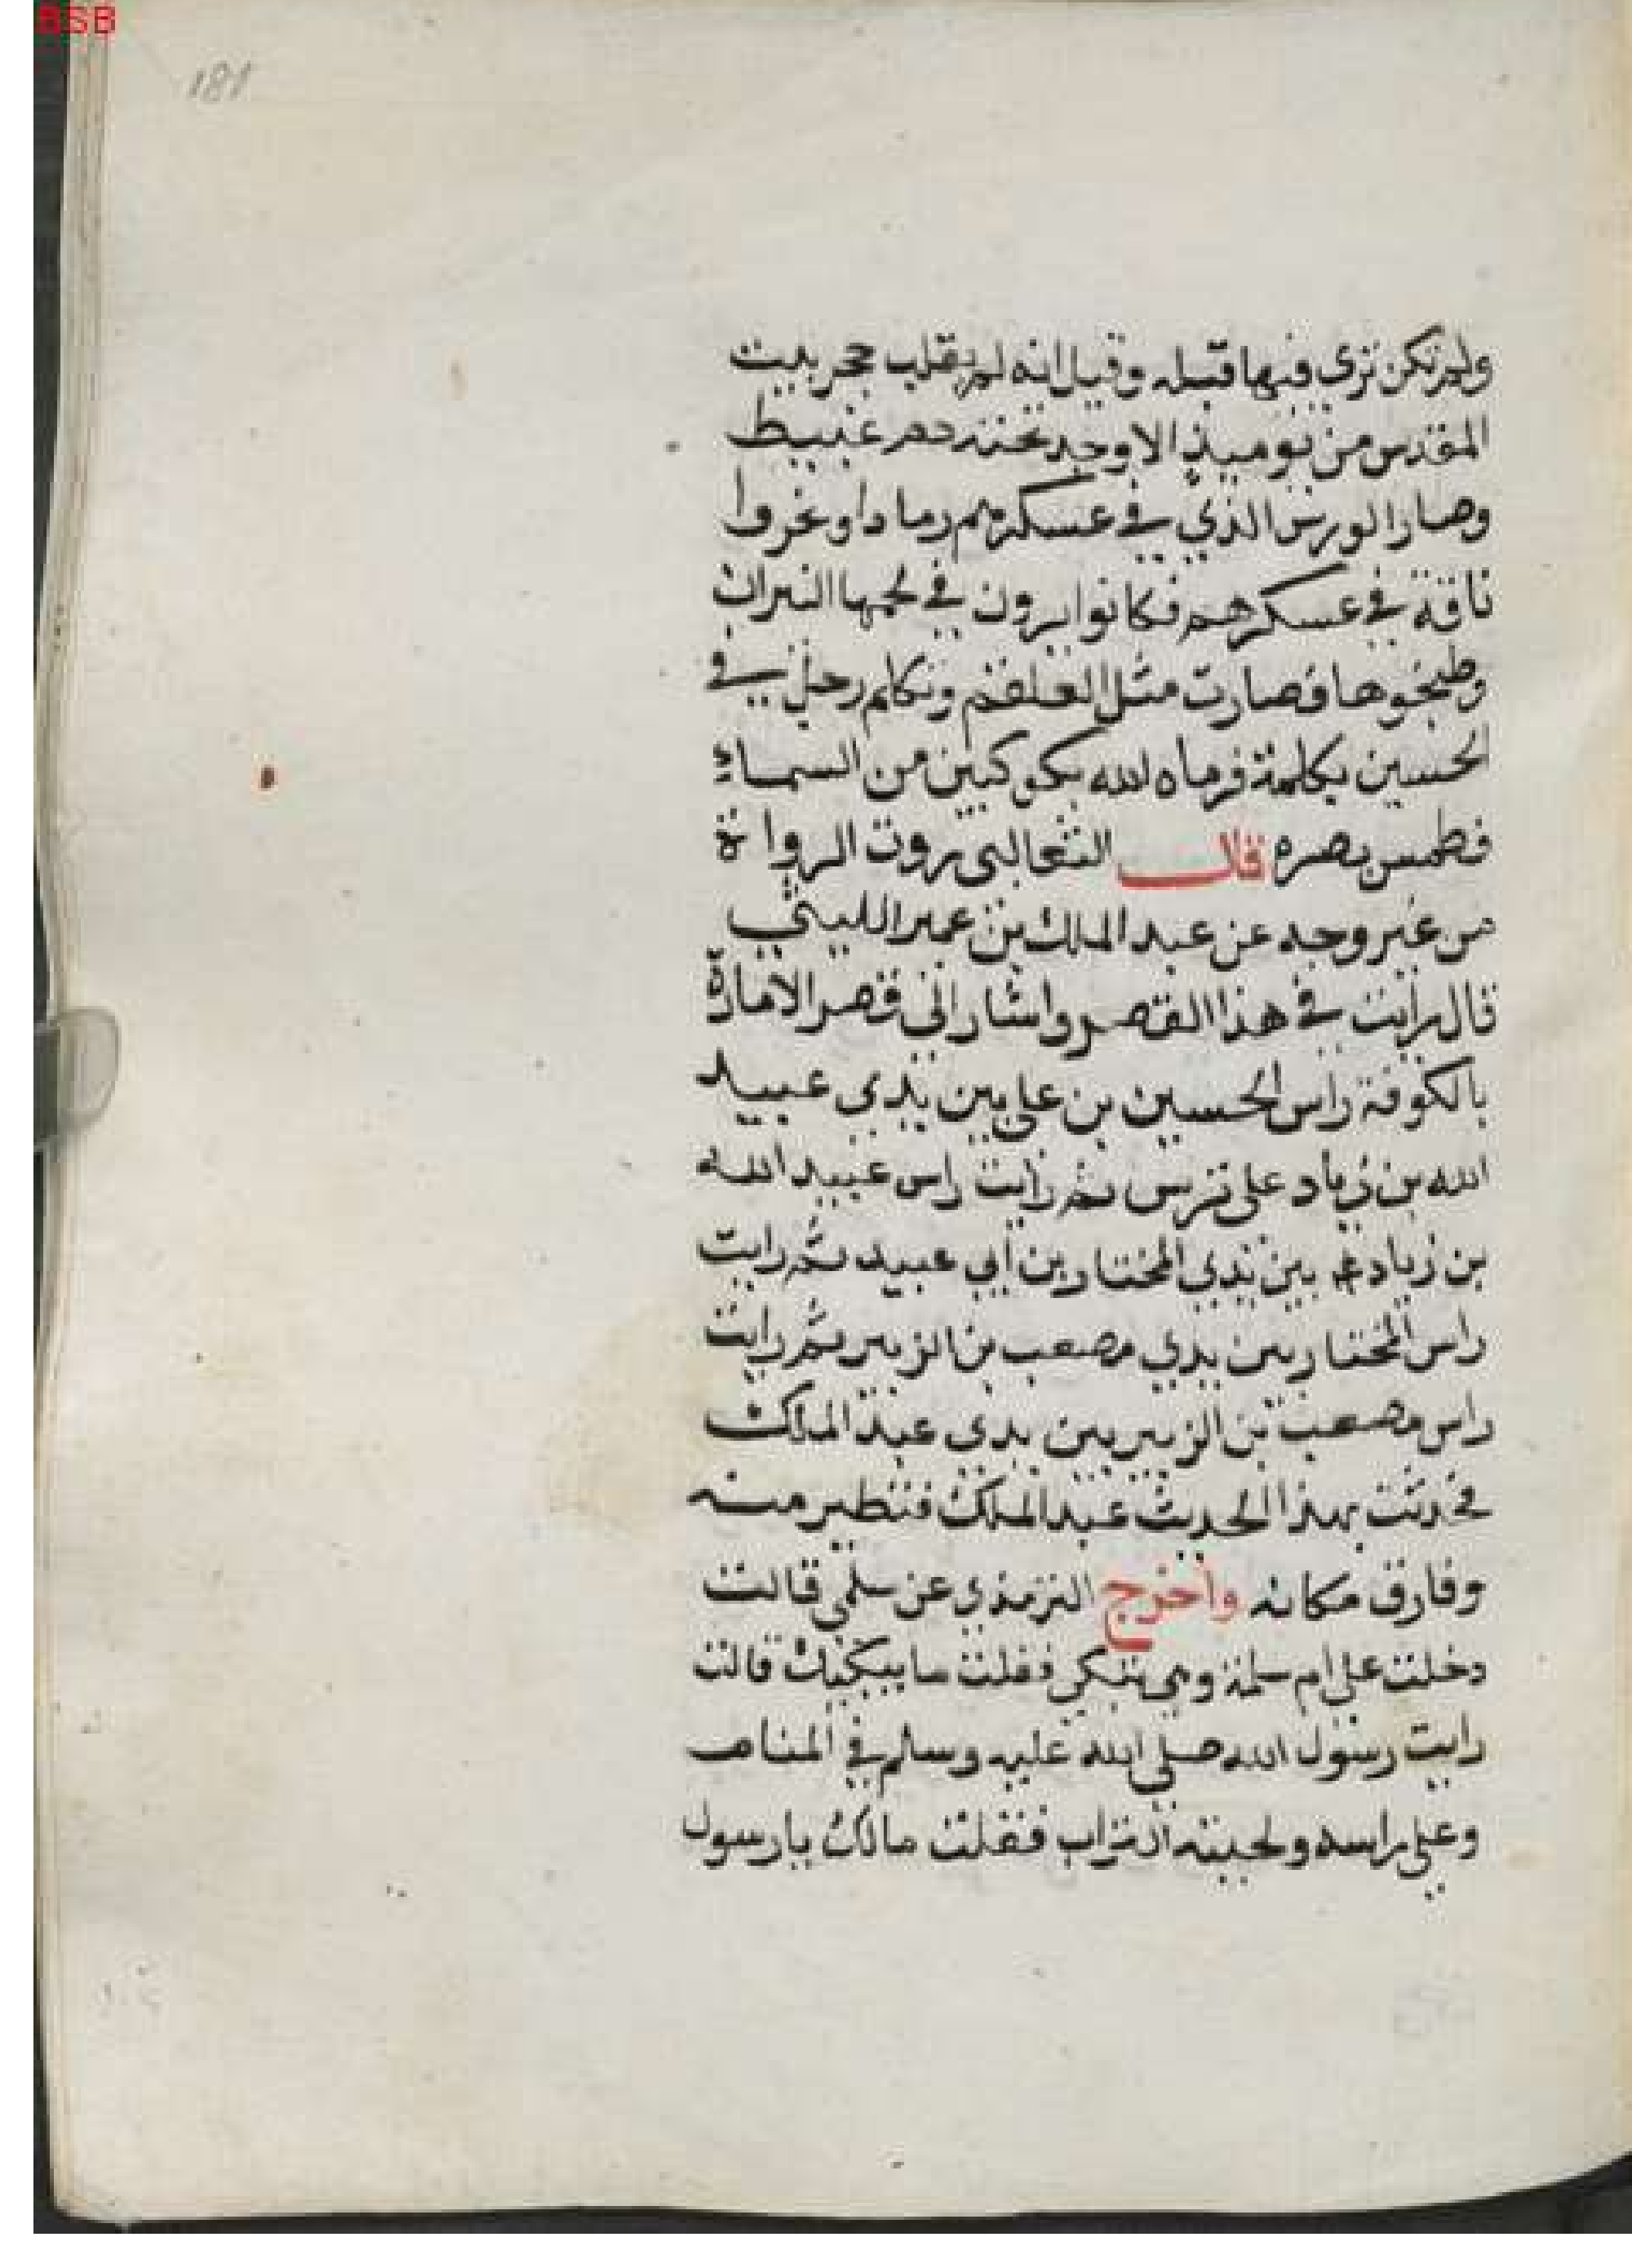 BSB
181
ولم تكن ترى فيها قبله وقيل انه لم يقلب حجر ببيت
المقدس من يوميذ الا وجد تحته دم عبيط
وصار الورس الذي في عسكرهم رمادا ونحروا
ناقة في عسكرهم فكانوا يرون في لحمها النيران
وطبخوها فصارت مثل العلقم وتكلم رجل في
الحسين بكلمة فرماه الله بكوكبين من السماء
فطمس بصره قال الثعالبى روت الرواة
من غير وجه عن عبد الملك بن عمير الليثي
قال رايت في هذا القصر واشار الى قصر الامارة
بالكوفة راس الحسين بن على بين يدى عبيد
الله بن زياد على ترس ثم رايت راس عبيد الله
بن زياد بين يدي المختار بن أبي عبيد ثم رايت
راس المختار بين يدي مصعب بن الزبير ثم رايت
راس مصعب بن الزبير بين يدى عبد الملك
فحدثت بهذا الحديث عبد الملك فتطير منه
وفارق مكانه واخرج الترمذي عن سلمى قالت
دخلت على ام سلمة وهي تبكي فقلت ما يبكيك قالت
رايت رسول الله صلى الله عليه وسلم في المنام
وعلى راسه ولحيته التراب فقلت مالك يا رسول